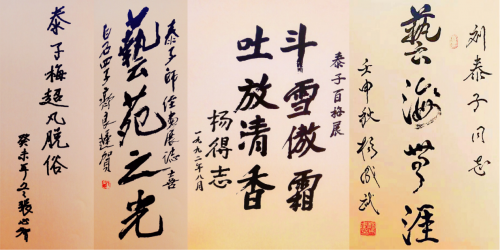 泰子梅超凡脱俗
癸未年冬张心智
泰子师经典展志喜
藝苑之光
白石四子齐良迟贺
泰子百梅展
斗雪傲霜
吐放清香
杨得志
一九九二年八月
刘泰子同志
藝海无涯
壬申秋杨成武